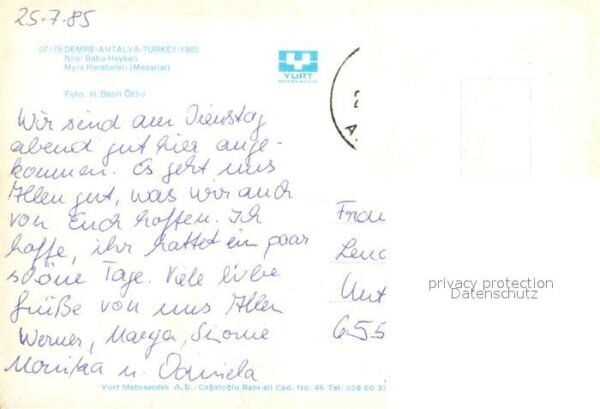 25.7.85
07/78 DEMRE-ANTALYA-TURKEY-1985
Noel Baba Heykeli
Myra Harabeleri (Mezarlar)
YURT
Foto: H. Basri Özsu
Wir sind am Dienstag
abend gut hier ange-
kommen. Es geht uns
Allen gut, was wir auch
von Euch hoffen. Ich
hoffe, ihr hattet ein paar
schöne Tage. Viele liebe
Grüße von uns Allen
Werner, Marga, Simone
Monika u. Daniela
Frau
Unt
655
privacy protection
Datenschutz
Yurt Matbaacılık A.Ş.: Cağaloğlu Babıali Cad. No. 46 Tel: 528 60 3